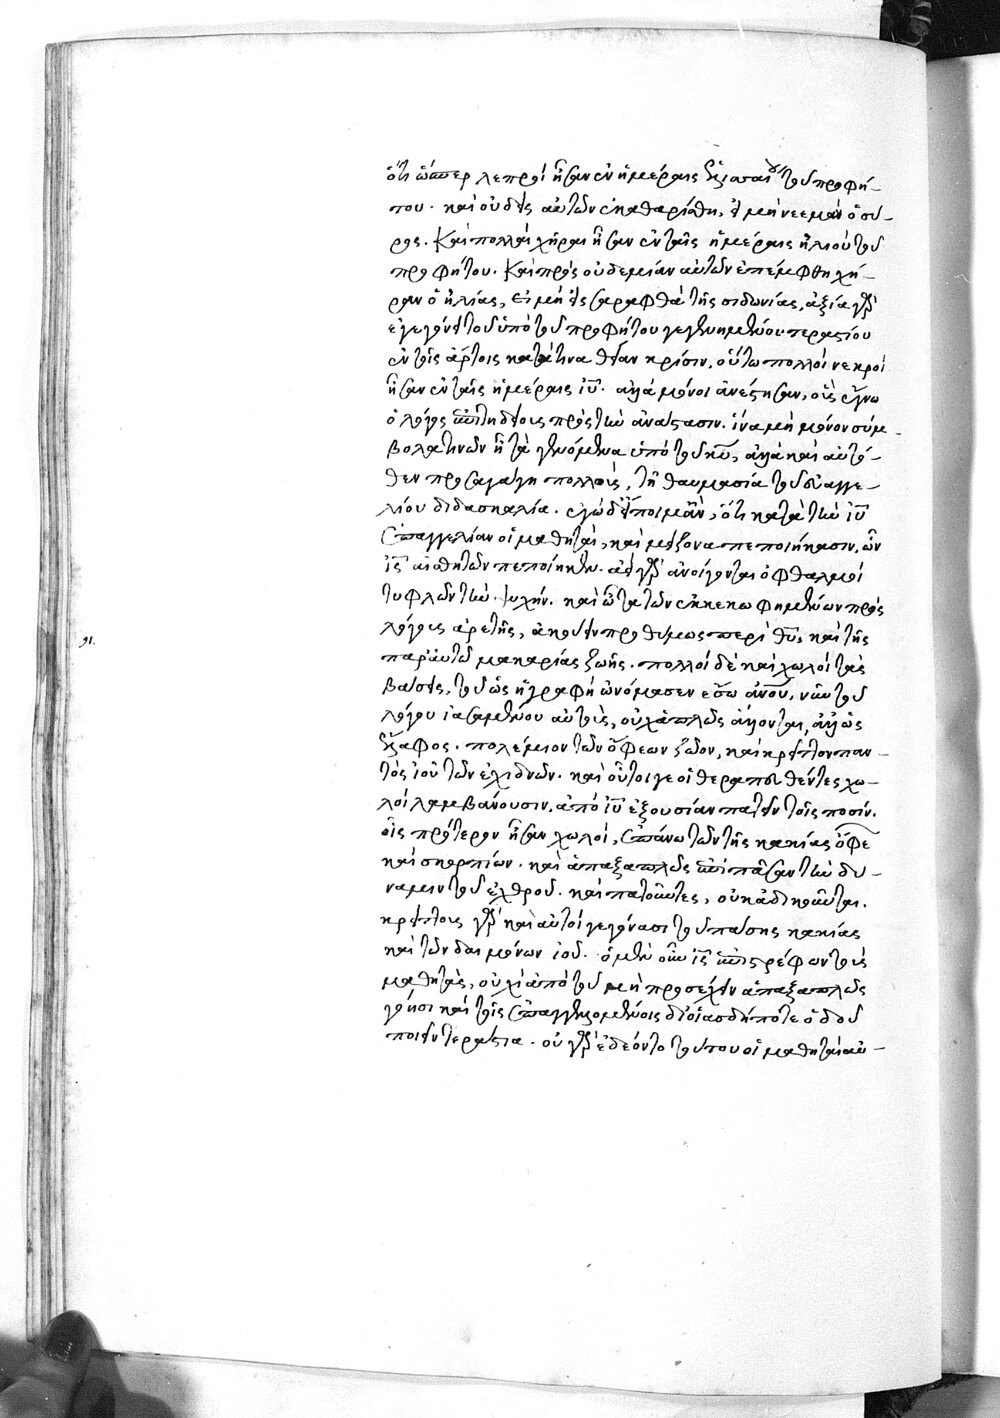 ὅτι ὥσπερ λεπροὶ ἦσαν ἐν ἡμέραις ἑλισαιου τοῦ προφή-
του. καὶ οὐδεὶς αὐτῶν ἐκαθαρίσθη, εἰ μὴ νεεμὰν ὁ σύ-
ρος. Καὶ πολλαὶ χῆραι ἦσαν ἐν ταῖς ἡμέραις ἠλιοὺ τοῦ
προφήτου. Καὶ πρὸς οὐδεμίαν αὐτῶν ἐπέμφθη χή-
ραν ὁ ἠλίας, εἰ μὴ εἰς σαραφθὰ τῆς σιδωνίας, ἀξία γὰρ
ἐγεγόνει τοῦ ὑπὸ τοῦ προφήτου γεγενημένου τεραστίου
ἐν τοῖς ἄρτοις κατά τινα θείαν κρίσιν. οὕτω πολλοὶ νεκροὶ
ἦσαν ἐν ταῖς ἡμέραις ἰῦ. ἀλλὰ μόνοι ἀνέστησαν, οὓς ἔγνω
ὁ λόγος ἐπιτηδείους πρὸς τὴν ἀνάστασιν. ἵνα μὴ μόνον σύμ-
βολά τινων ᾖ τὰ γενόμενα ὑπὸ τοῦ κῦ, ἀλλὰ καὶ αὐτό-
θεν προσαγάγῃ πολλοὺς, τῇ θαυμασίᾳ τοῦ εὐαγγε-
λίου διδασκαλίᾳ. ἐγὼ δ' εἴποιμ' ἂν, ὅτι κατὰ τὴν ἰῦ
ἐπαγγελίαν οἱ μαθηταὶ, καὶ μείζονα πεποιήκασιν, ὧν
ἰς αἰσθητῶν πεποίηκεν. ἀεὶ γὰρ ἀνοίγονται ὀφθαλμοὶ
τυφλῶν τὴν ψυχήν. καὶ ὦτα τῶν ἐκκεκωφημένων πρὸς
λόγους ἀρετῆς, ἀκούει προθύμως περὶ θῦ, καὶ τῆς
παρ' αὐτῷ μακαρίας ζωῆς. πολλοὶ δὲ καὶ χωλοὶ τὰς
βάσεις, τοῦ ὡς ἡ γραφὴ ὠνόμασεν ἔσω ἀνοῦ, νῦν τοῦ
λόγου ἰασαμένου αὐτοὺς, οὐχ ἁπλῶς ἅλλονται, ἀλλ' ὡς
ἔλαφος. πολέμιον τῶν ὄφεων ζῶον, καὶ κρεῖττον παν-
τὸς ἰοῦ τῶν ἐχιδνῶν. καὶ οὗτοί γε οἱ θεραπευθέντες χω-
λοὶ λαμβάνουσιν, ἀπὸ ἰῦ ἐξουσίαν πατεῖν τοῖς ποσὶν.
οἷς πρότερον ἦσαν χωλοὶ, ἐπάνω τῶν τῆς κακίας ὄφε
καὶ σκορπίων. καὶ ἁπαξαπλῶς ἐπὶ πᾶσαν τὴν δύ-
ναμιν τοῦ ἐχθροῦ. καὶ πατοῦντες, οὐκ ἀδικοῦνται.
κρείττους γὰρ καὶ αὐτοὶ γεγόνασι τοῦ πάσης κακίας
καὶ τῶν δαιμόνων ἰοῦ. ὁ μὲν οὖν ἰς ἐπιστρέφων τοὺς
μαθητὰς, οὐχὶ ἀπὸ τοῦ μὴ προσέχειν ἁπαξαπλῶς
γόησι καὶ τοῖς ἐπαγγελλομένοις δι' οἱασδήποτε ὁδοῦ
ποιεῖν τεράστια. οὐ γὰρ ἐδέοντο τούτου οἱ μαθηταὶ αὐ-
91.